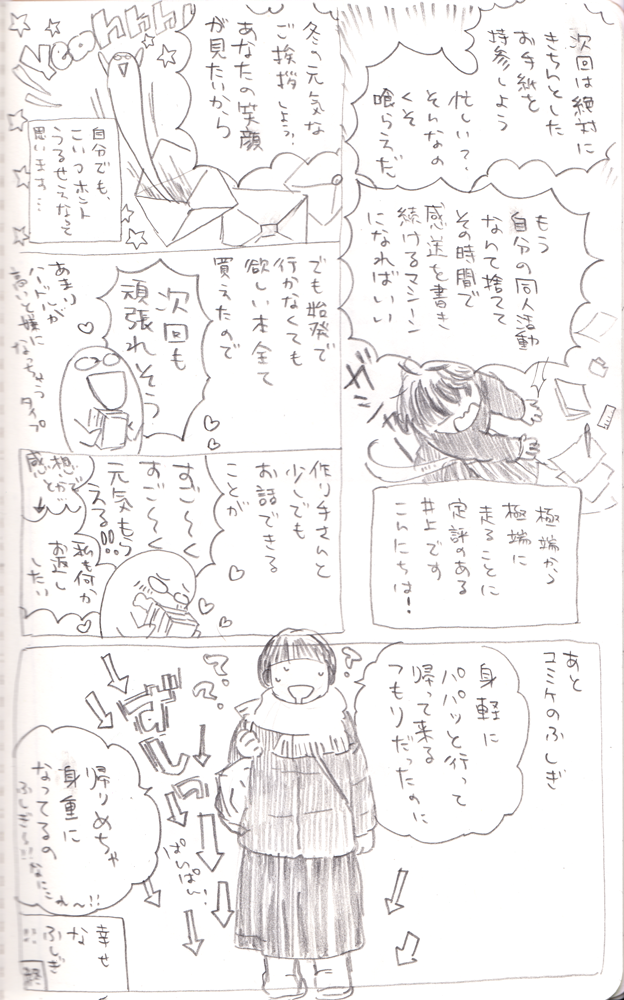 次回は絶対に
きちんとした
お手紙を
持参しよう
忙しい?
そんなの
くそ
喰らえだ
もう
自分の同人活動
なんて捨てて
その時間で
感送を書き
続けるマシーン
になればいい
極端から
極端に
走ることに
定評のある
井上です
こんにちは!
冬の元気な
ご挨拶しよう?
あなたの笑顔
が見たいから
Yeahhhh
自分でも、
こいつホント
うるせえなって
思います…
でも始発で
行かなくても
欲しい本全て
買えたので
次回も
頑張れそう
あまり
ハードルが
高いと嫌に
なっちゃうタイプ
作り手さんと
少しでも
お話できる
ことが
すご~く
すご~く
元気もら
える!!
私も何か
お返し
したい
感想
とかで
あと
コミケのふしぎ
身軽に
パパッと行って
帰って来る
つもりだったのに
ずしっ
ぱんぱん!
帰りめちゃ
身重に
なってるの
ふしぎ~!!なにこれ~!!
幸せ
な
ふしぎ
!!
終